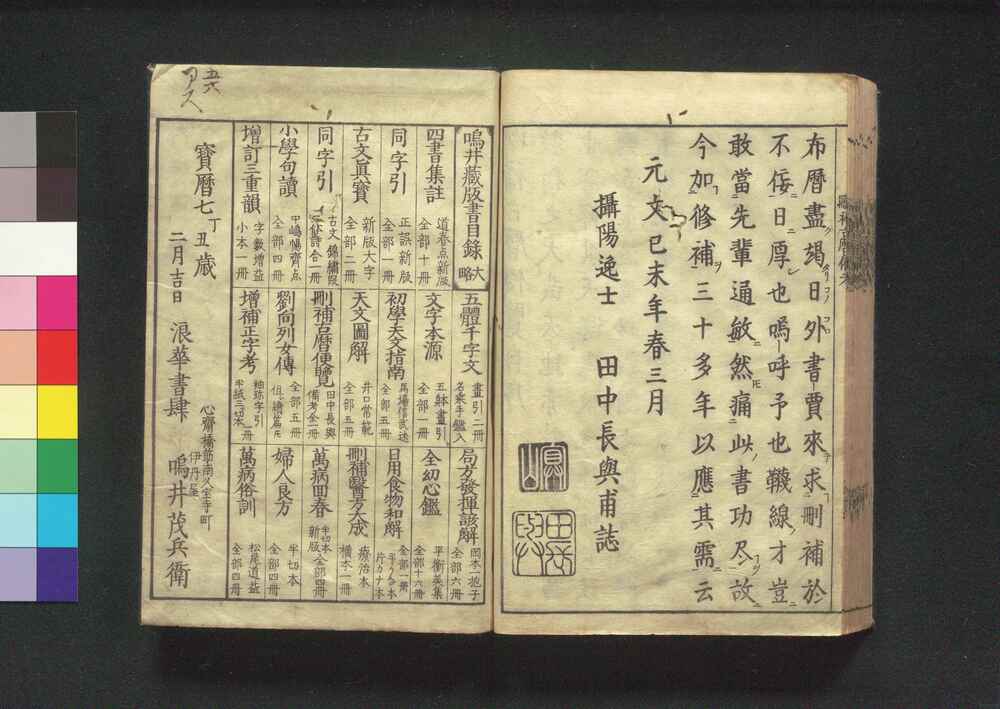 布曆盡竭日外書賈來求刪補於
不佞日厚也嗚呼予也韈線才豈
敢當先輩通敏然痛此書功尽故
今加修補三十多年以應其需云
元文己未年春三月
攝陽逸士 田中長與甫誌
嗚井藏版書目錄 大略
四書集註 道春点新版 全部十冊
同字引 正誤新版 全部一冊
古文眞寳 新版大字 全部二冊
同字引 古文錦繍段 合一冊
小學句讀 中嶋惕齊点 全部四冊
增訂三重韻 字數增益 小本一冊
五體千字文 畫引二冊
文字本源 五躰畫引 全部一冊
初學天文指南 馬場信武述 全部五冊
天文圖解 井口常範 全部五冊
刪補古曆便覽 田中長與 備考全一冊
劉向列女傳 全部五冊
增補正字考 袖珍字引 半紙三切本一冊
局方發揮諺解 岡本一抱子 全部六冊
全幼心鑑 平衡美集 全部十六冊
日用食物和解 全部一葉
刪補醫方大成 療治本 橫本一冊
萬病回春 半切本 新版 全部四冊
婦人良方 半切本 全部四冊
萬病俗訓 松尾道益 全部四冊
寳曆七丁丑歲
二月吉日
浪華書肆
心齋橋筋南久宝寺町
伊丹屋
嗚井茂兵衛
五六